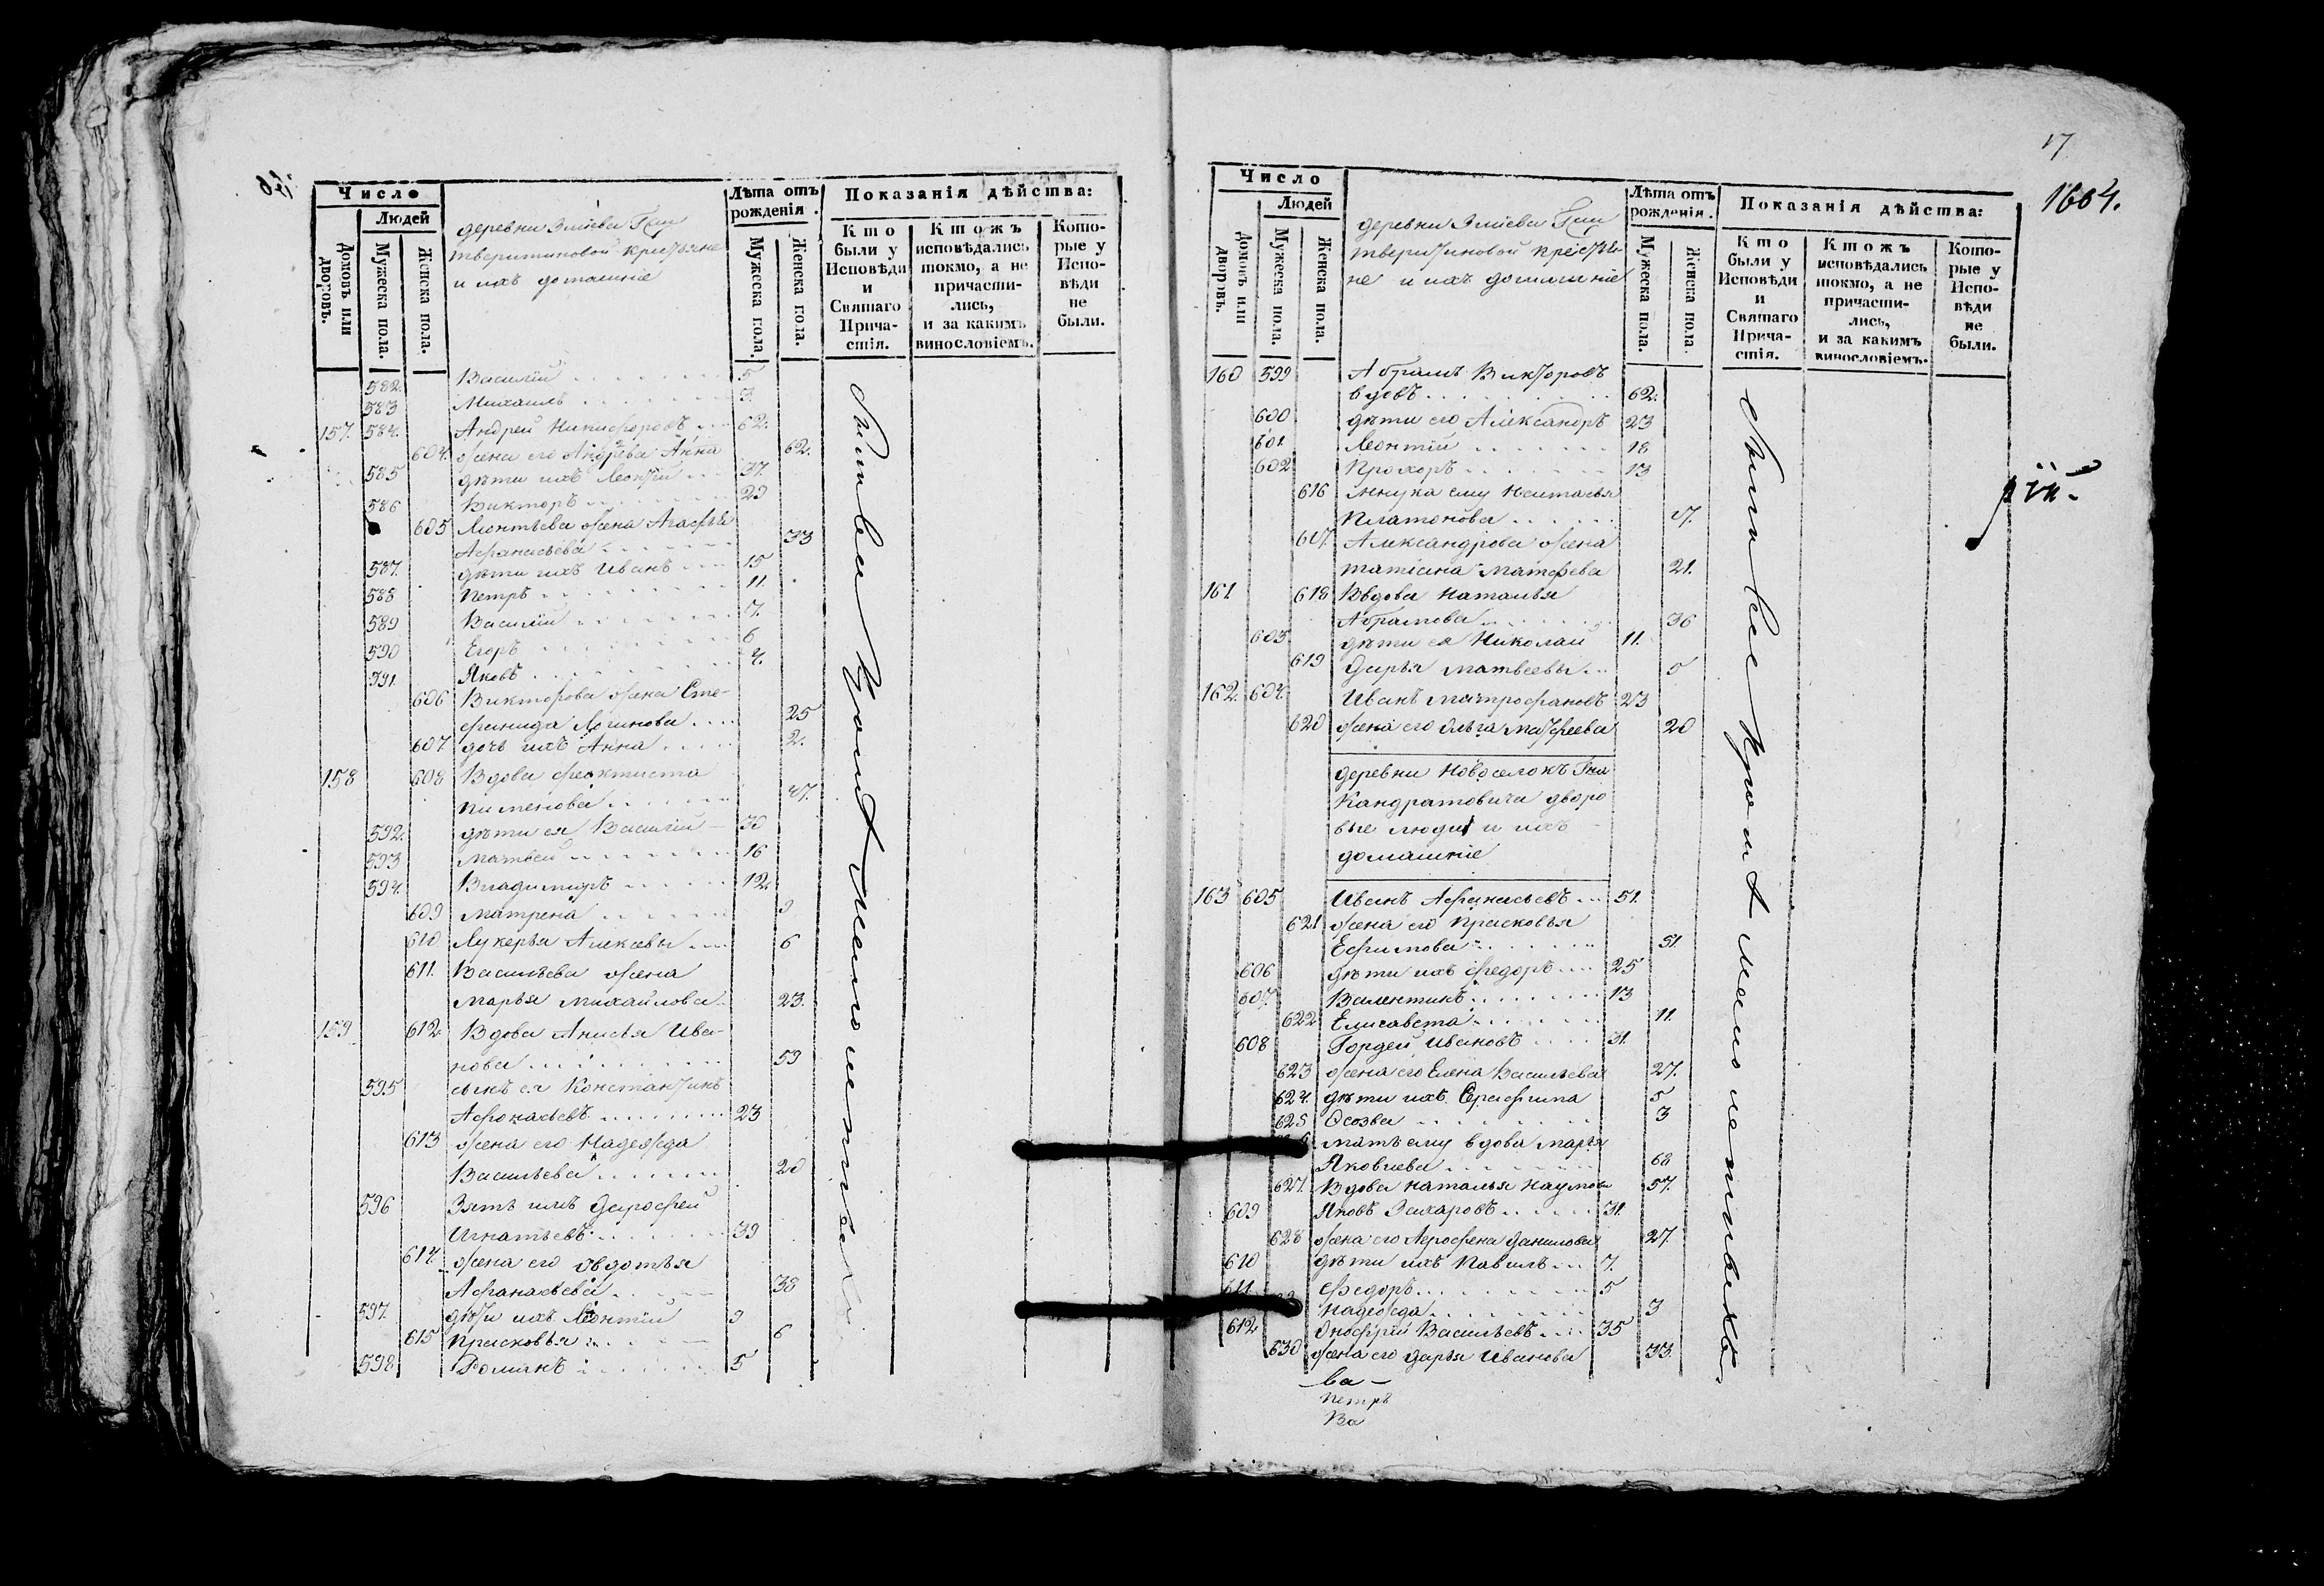 Число
Людей
Домовъ или дворовъ.
Мужеска пола.
Женска пола.
деревни Элиева Гжи
тверитиновой кристьяне
и ихъ домашніе
Лѣта отъ рожденія.
Мужеска пола.
Женска пола.
Показанія дѣйства:
Кто были у Исповѣди и Святаго Прича-стія.
Ктожъ исповѣдались токмо, а не причасти-лись, и за какимъ винословіемъ.
Кото-рые у Испо-вѣди не были.
582 Василій 5
583 Михаилъ 3
157. 584. Андрей Никифоровъ 62.
604. жена его Анна 62.
585 дѣти ихъ Леонтій 37.
586 Викторъ 29
605 Леонтьева жена Агафья
Афанасьева 33
587. дѣти ихъ Иванъ 15
588 Петръ 11.
589 Василій 7.
590 Егоръ 6
591. Яковъ 4.
606 Викторова жена Сте-
фанида Логинова 25
607 дочь ихъ Анна 2.
158 608 Вдова Феоктиста
Пименова 47.
592. дѣти ея Василій 30
593 Матвей 16
594. Владимиръ 12.
609 Матрена 9
610 Лукерья Алексевы 6
611. Васильева жена
Марья Михайлова 23.
159 612. Вдова Анисья Ива-
нова 59
595 сынъ ея Константинъ
Афонасьевъ 23
613 жена его Надежда
Васильева 20
596 Зять имъ Дорофей
Игнатьевъ 39
614. жена его Овдотья
Афанасьева 38
597. дѣти ихъ Леонтій 9
615 Прасковья 6
598 Романъ 5
17
1664.
Число
Людей
Домовъ или дворовъ.
Мужеска пола.
Женска пола.
деревни Элиева Гжи
тверитиновой кресть-
не и ихъ домашніе
Лѣта отъ рожденія.
Мужеска пола.
Женска пола.
Показанія дѣйства:
Кто были у Исповѣди и Святаго Прича-стія.
Ктожъ исповѣдались токмо, а не причасти-лись, и за какимъ винословіемъ.
Кото-рые у Испо-вѣди не были.
160 599 Абрамъ Викторовъ
вдовъ 62.
600 дѣти его Александръ 23
601. Леонтій 18
602 Прохоръ 13
616 внука ему Наталья
Платонова
617. Александрова жена
татіана Матфева 21.
161. 618 Вдова Наталья
Абрамова 36
603 дѣти ея Николай 11.
619 Дарья Матвеевы 5
162. 604. Иванъ Митрофановъ 23
620 жена его Ольга Матфеева 20
деревни Новоселокъ Гна
Кандратовича дворо
вые люди и ихъ
домашніе
163 605 Иванъ Афанасьевъ 51.
621 жена его Прасковья
Ефимова 51.
606 дѣти ихъ Федоръ 25
607. Валентинъ 13
622 Елисавета 11.
608 Гордей Ивановъ 31.
623 жена его Елена Васильева 27.
624. дѣти ихъ Серафима 5
625 3
мать ему вдова Марья
Яковлева 68
627. Вдова Наталья Наумова 57.
609 Яковъ Захаровъ 31.
628 жена его Агрофена Данилова 27.
610 дѣти ихъ Павилъ 7.
611 Федоръ 5
Надежда 3
612 Онофрій Васильевъ 35
630 жена его Дарья Иванова 33.
ва
Петръ
Ва